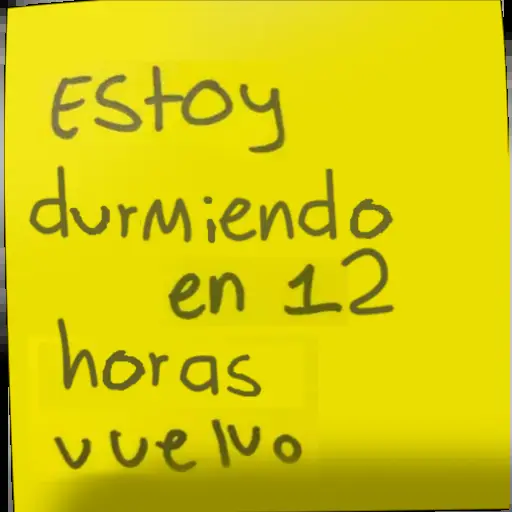 Estoy
durmiendo
en 12
horas
vuelvo